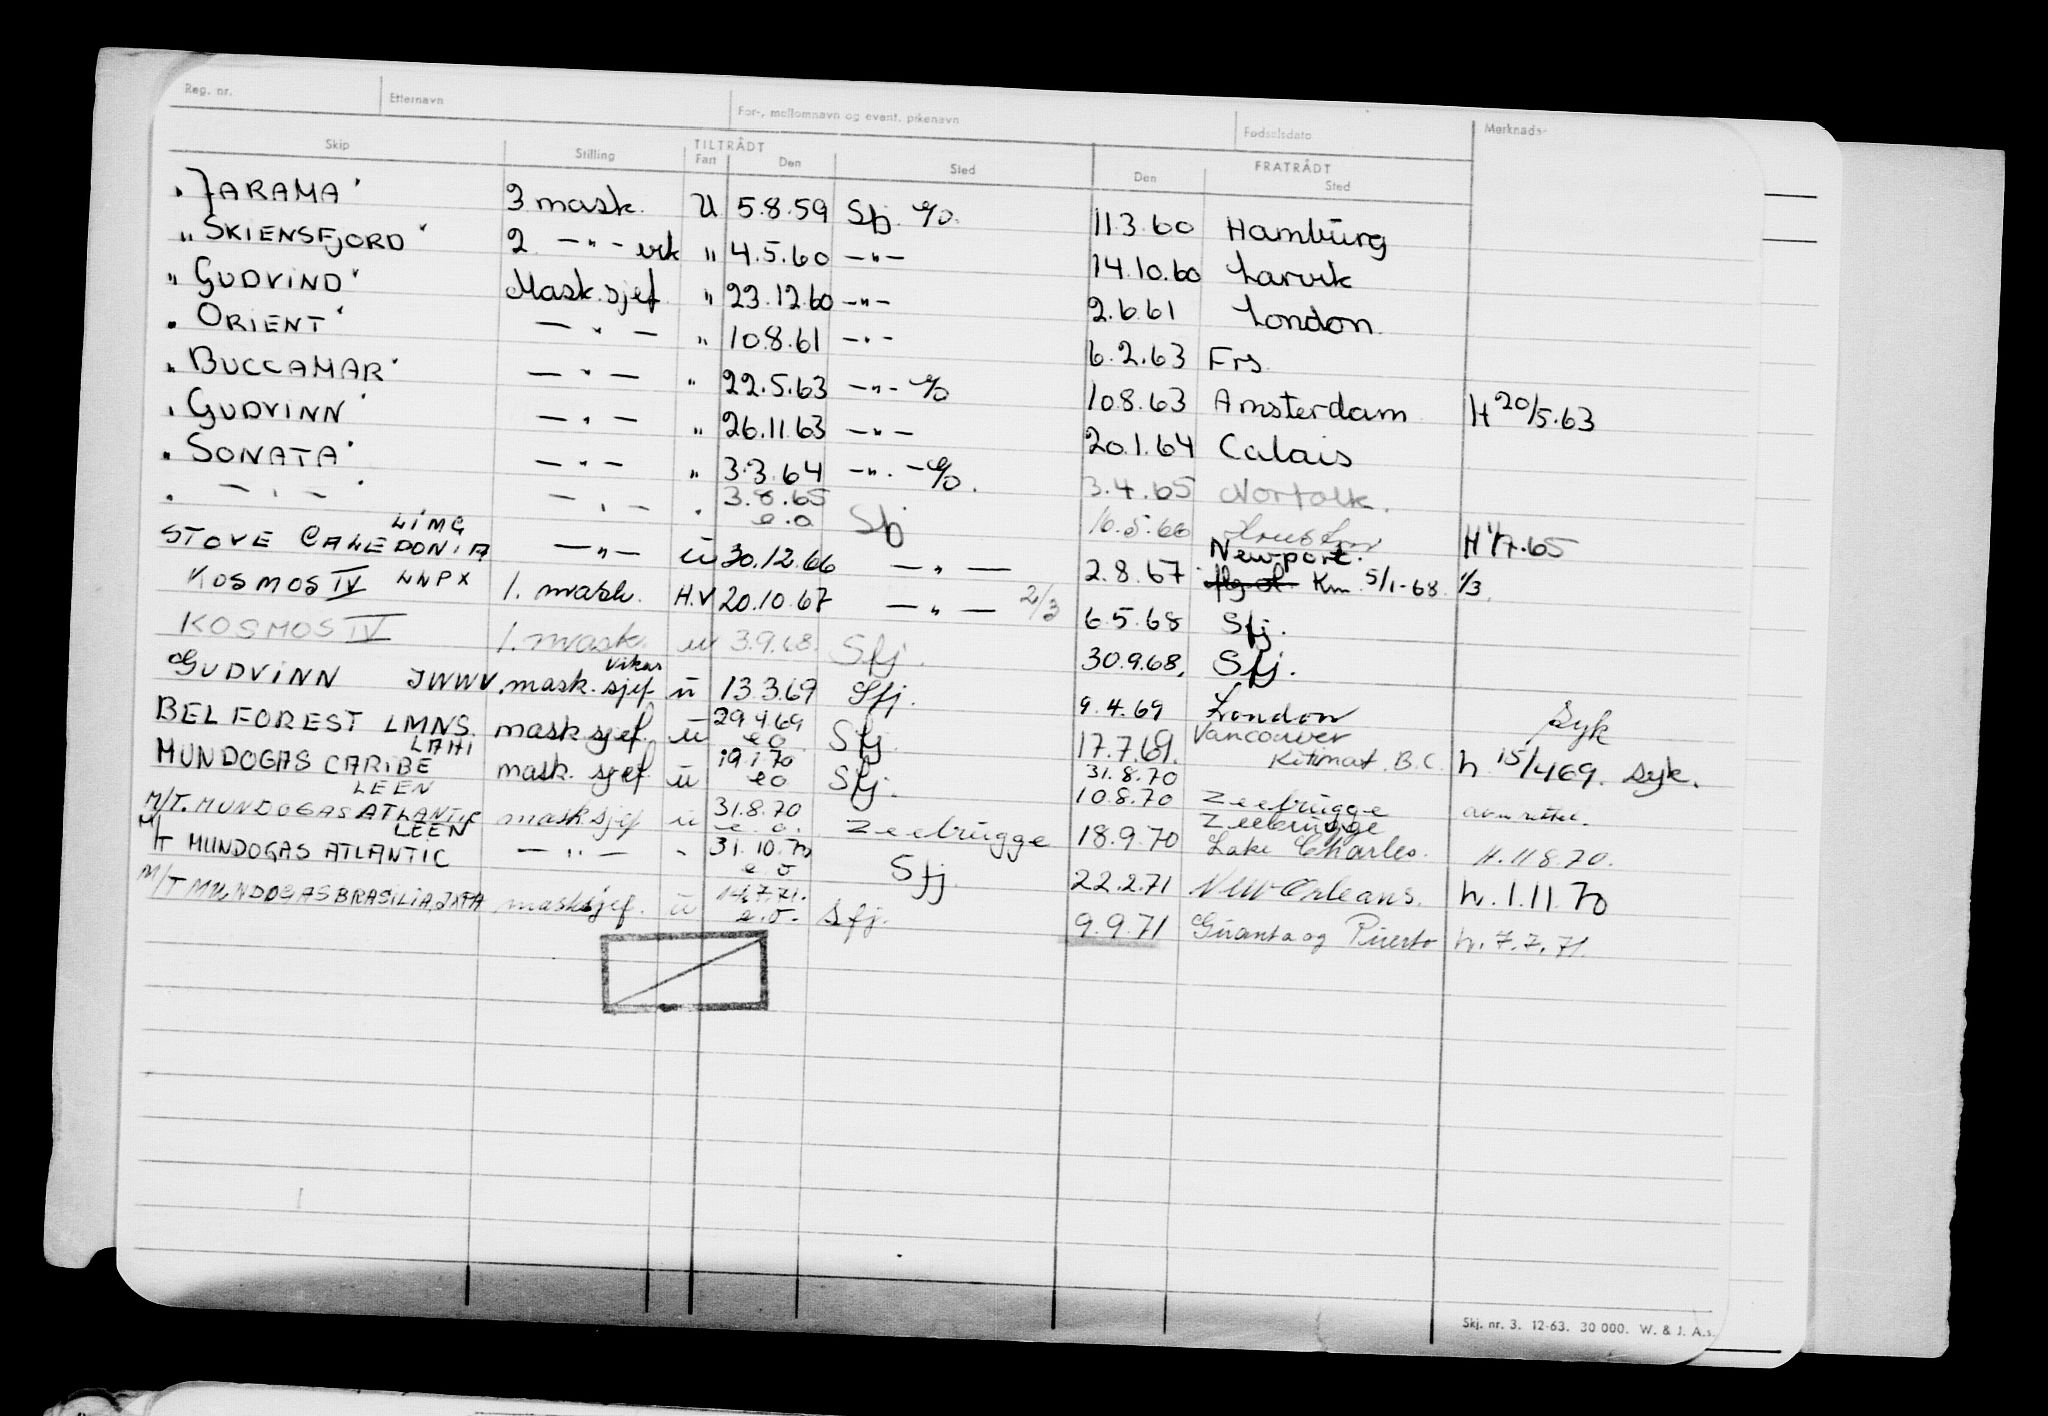 Reg. nr. Etternavn For-, mellomnavn og event. pikenavn Fødselsdato Merknads-
Skip Stilling TILTRÅDT Fart Den Sted FRATRÅDT Den Sted
"JARAMA" 3 mask. U 5.8.59 Sfj. e/o. 11.3.60 Hamburg
"SKIENSFJORD" 2 —"— vik " 4.5.60 —"— 14.10.60 Larvik
"GUDVIND" Mask.sjef " 23.12.60 —"— 2.6.61 London
"ORIENT" —"— " 10.8.61 —"— 6.2.63 Frs.
"BUCCAMAR" —"— " 22.5.63 —"— e/o 10.8.63 Amsterdam H 20/5.63
"GUDVINN" —"— " 26.11.63 —"— 20.1.64 Calais
"SONATA" —"— " 3.3.64 —"— e/o. 3.4.65 Norfolk.
" —"— " —"— " 3.8.65 e.o Sfj 16.5.66 Houston H 1/7.65
STOVE CALEDONIA LIMG —"— u 30.12.66 —"— 2.8.67 Newport. Km 5/1-68 1/3.
KOSMOS IV LNPX 1. mask. H.V 20.10.67 —"— 2/3 6.5.68 Sfj.
KOSMOS IV 1. mask. u 3.9.68. Sfj. 30.9.68. Sfj.
GUDVINN JWWV. mask.sjef vikar u 13.3.69 Sfj. 9.4.69 London Syk
BELFOREST LMNS. mask sjef. u 29.4.69 e o Sfj. 17.7.69. Vancouver Kitimat. B.C. h 15/4 69. syk.
MUNDOGAS CARIBE LAHI mask. sjef u 19.1.70 e o Sfj. 31.8.70
10.8.70 Zeebrugge
M/T. MUNDOGAS ATLANTIC LEEN mask sjef u 31.8.70 e. o. Zeebrugge 18.9.70 Zeebrugge Lake Charles. H. 11 8.70.
M/T MUNDOGAS ATLANTIC LEEN —"— " 31.10.70 e o Sfj. 22.2.71 New Orleans. h. 1.11 70
M/T MUNDOGAS BRASILIA, JXFA masksjef. u 14.7.71. e.o. Sfj. 9.9.71 Guanta og Puerto h. 7.7.71.
Skj. nr. 3. 12-63. 30 000. W. & J. A.s.